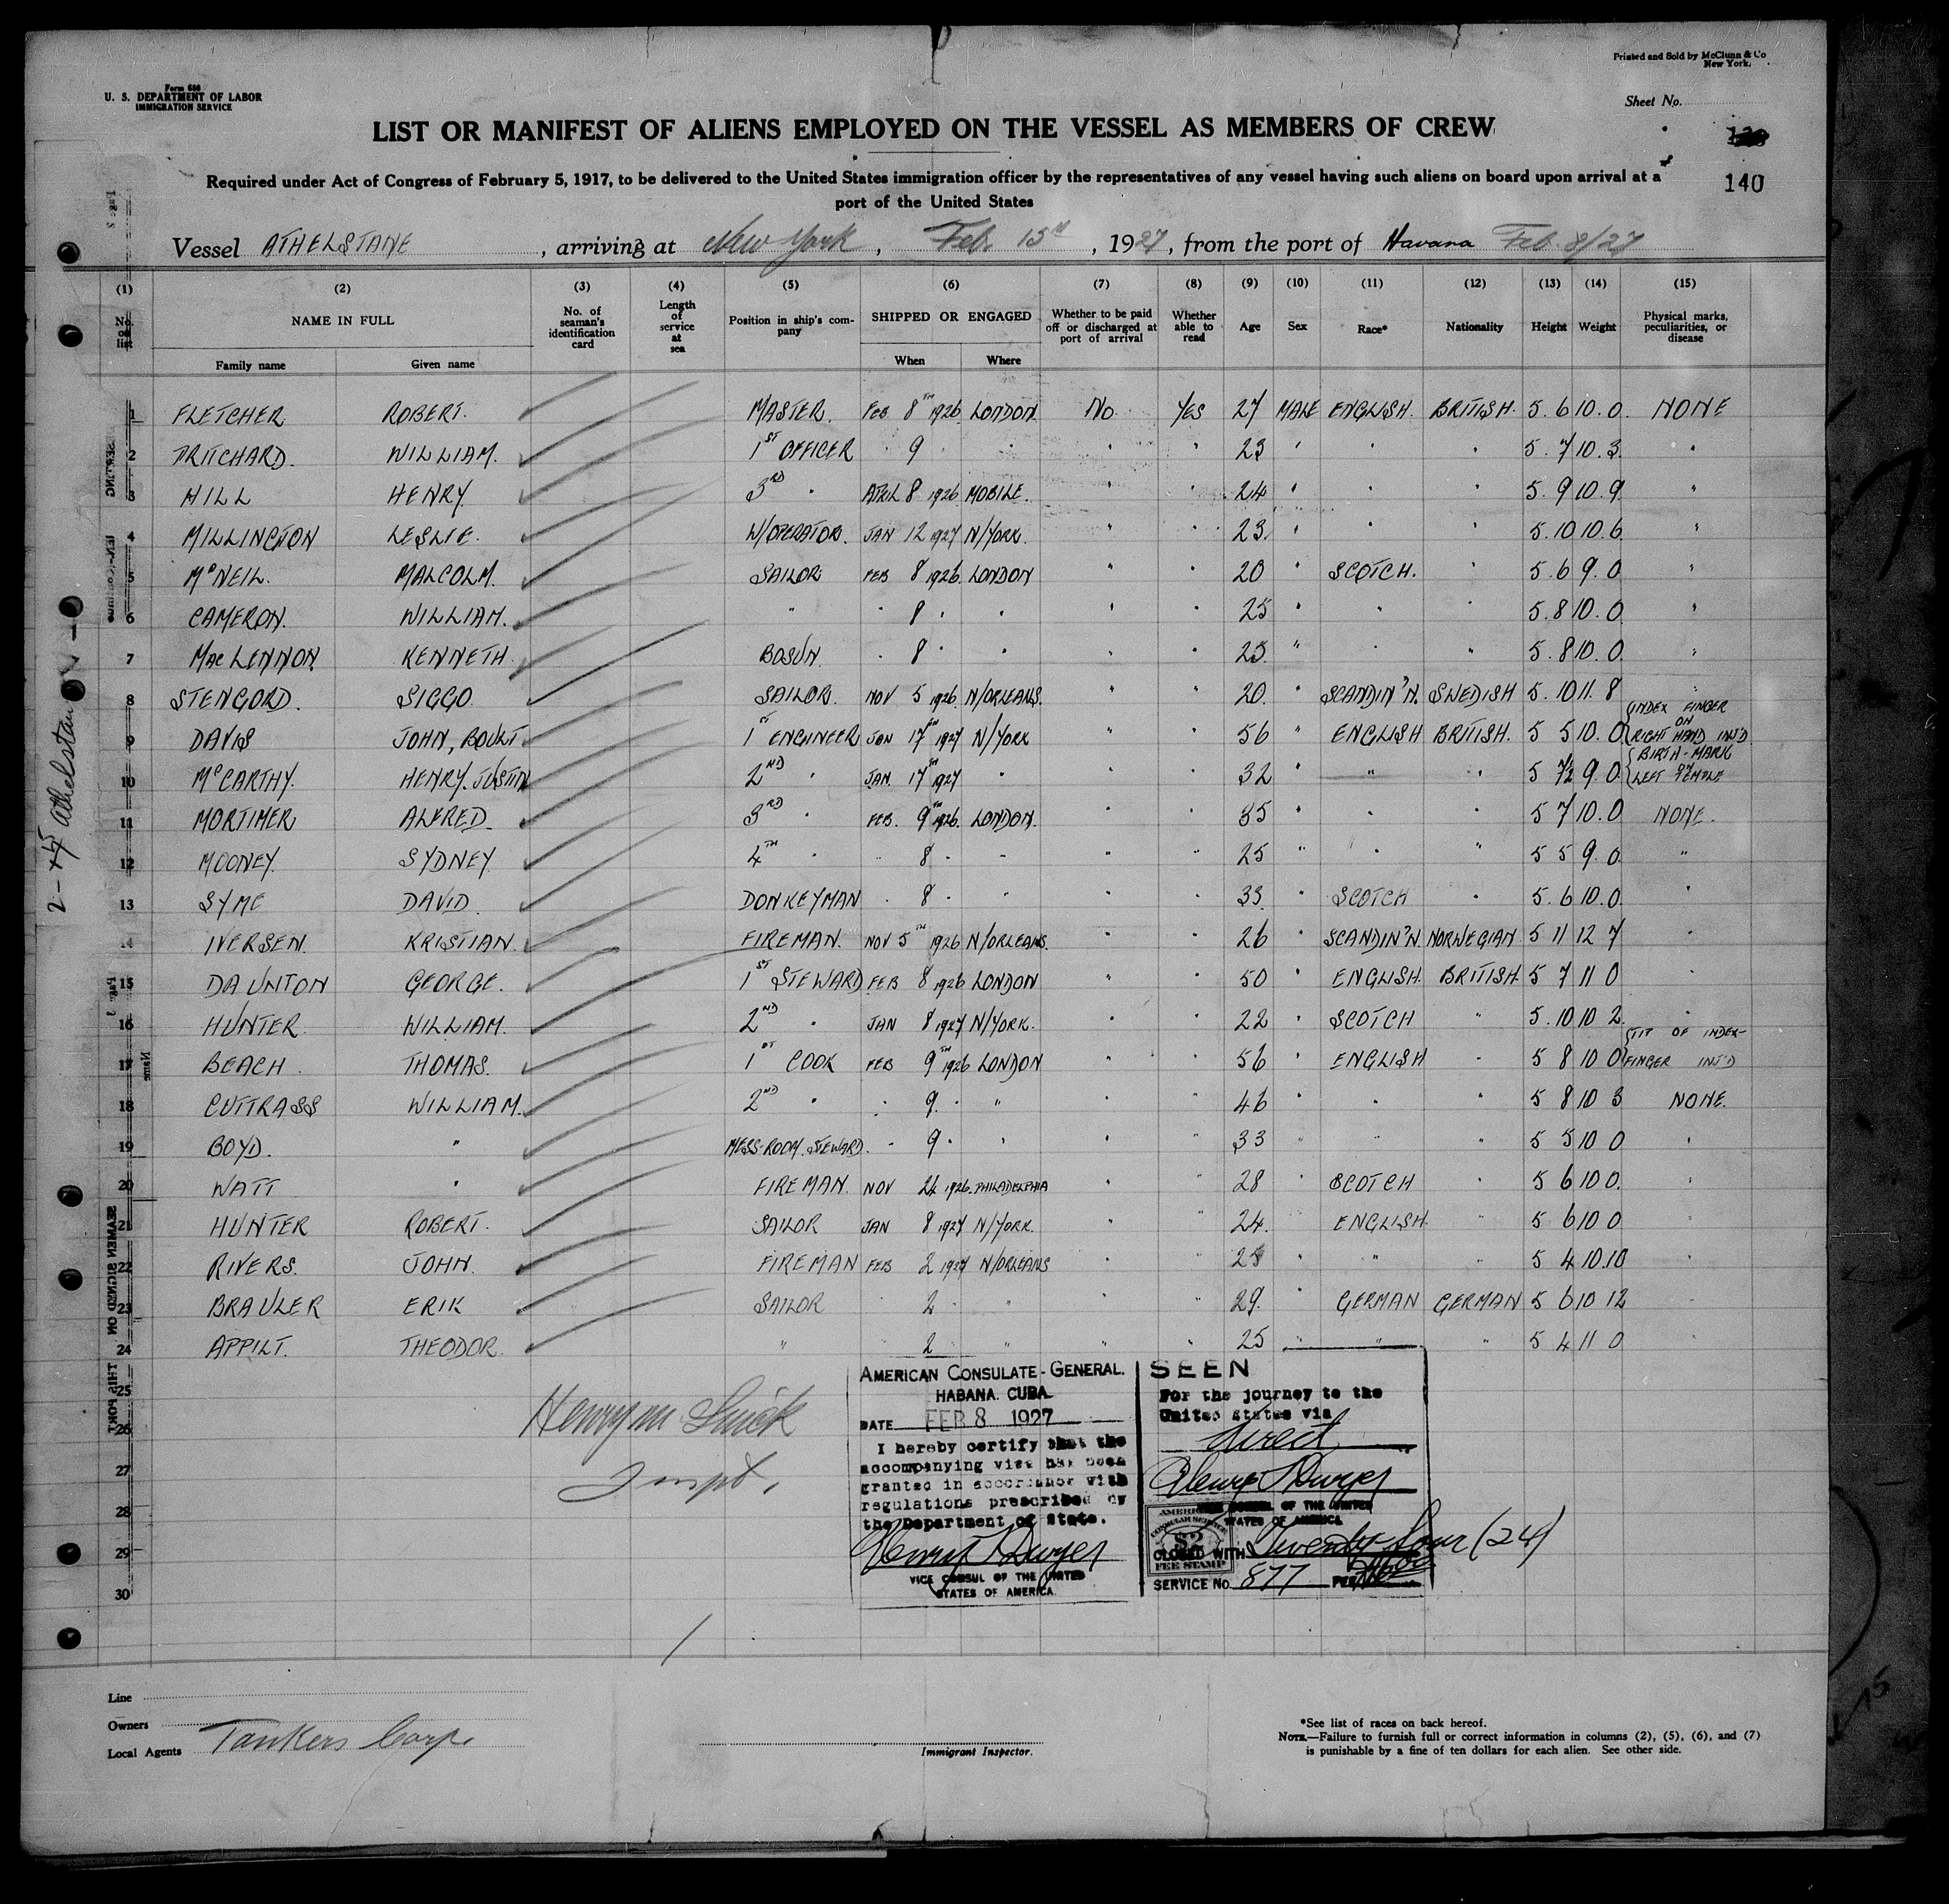 Form 680
U. S. DEPARTMENT OF LABOR
IMMIGRATION SERVICE
Printed and Sold by McClunn & Co
New York.
Sheet No.
LIST OR MANIFEST OF ALIENS EMPLOYED ON THE VESSEL AS MEMBERS OF CREW
Required under Act of Congress of February 5, 1917, to be delivered to the United States immigration officer by the representatives of any vessel having such aliens on board upon arrival at a
port of the United States
140
Vessel ATHELSTANE, arriving at New York, Feb. 15th, 1927, from the port of Havana Feb. 8/27
(1) (2) (3) (4) (5) (6) (7) (8) (9) (10) (11) (12) (13) (14) (15)
No. on list NAME IN FULL No. of seaman's identification card Length of service at sea Position in ship's company SHIPPED OR ENGAGED Whether to be paid off or discharged at port of arrival Whether able to read Age Sex Race* Nationality Height Weight Physical marks, peculiarities, or disease
Family name Given name When Where
1 FLETCHER ROBERT. MASTER. FEB 8TH 1926 LONDON No YES 27 MALE ENGLISH. BRITISH. 5. 6 10. 0. NONE
2 PRITCHARD. WILLIAM. 1ST OFFICER " 9 " " " " 23 " " " 5. 7 10. 3. "
3 HILL HENRY. 3RD " APRIL 8 1926 MOBILE. " " 24 " " " 5. 9 10. 9. "
4 MILLINGTON LESLIE. W/OPERATOR. JAN 12 1927 N/YORK. " " 23. " " " 5. 10 10. 6. "
5 McNEIL. MALCOLM. SAILOR FEB 8 1926. LONDON " " 20 " SCOTCH. " 5. 6 9. 0. "
6 CAMERON. WILLIAM. " " 8 " " " " 25 " " " 5. 8 10. 0. "
7 MacLENNON. KENNETH. BOSUN. " 8 " " " " 25. " " " 5. 8 10. 0. "
8 STENGORD. SIGGO SAILOR. NOV 5 1926. N/ORLEANS. " " 20. " SCANDIN'N. SWEDISH 5. 10 11. 8 "
9 DAVIS JOHN, BOULT. 1ST ENGINEER JAN 17TH 1927 N/YORK " " 56 " ENGLISH BRITISH. 5 5 10. 0 INDEX FINGER ON RIGHT HAND INJ'D
10 McCARTHY. HENRY. JUSTIN 2ND " JAN. 17TH 1927 " " " 32 " " " 5 7½ 9. 0 BIRTH-MARK LEFT TEMPLE
11 MORTIMER ALFRED. 3RD " FEB. 9TH 1926. LONDON. " " 35 " " " 5 7 10. 0 NONE.
12 MOONEY. SYDNEY. 4TH " " 8 " " " " 25 " " " 5 5 9. 0 "
13 SYME DAVID. DONKEYMAN " 8 " " " " 33. " SCOTCH " 5. 6 10. 0. "
14 IVERSEN. KRISTIAN. FIREMAN. NOV 5TH 1926 N/ORLEANS. " " 26 " SCANDIN'N. NORWEGIAN 5 11 12 7 "
15 DAUNTON GEORGE. 1ST STEWARD FEB 8 1926 LONDON " " 50 " ENGLISH. BRITISH 5 7 11 0 "
16 HUNTER. WILLIAM. 2ND " JAN 8 1927 N/YORK. " " 22 " SCOTCH " 5. 10 10 2. "
17 BEACH THOMAS. 1ST COOK FEB 9TH 1926 LONDON " " 56 " ENGLISH " 5 8 10 0 TIP OF INDEX-FINGER INJ'D
18 CUTTRASS WILLIAM. 2ND " " 9. " " " " 46 " " " 5 8 10 3 NONE.
19 BOYD. " MESS-ROOM. STEWARD. " 9 " " " " 33 " " " 5 5 10 0 "
20 WATT " FIREMAN. NOV 24 1926. PHILADELPHIA " " 28 " SCOTCH " 5 6 10 0. "
21 HUNTER ROBERT. SAILOR JAN 8 1927 N/YORK. " " 24. ENGLISH. " 5 6 10 0 "
22 RIVERS. JOHN. FIREMAN FEB 2 1927 N/ORLEANS " " " " " 5 4 10.10 "
23 BRAULER ERIK SAILOR 2 " " " " 29. " GERMAN GERMAN 5 6 10 12 "
24 APPILT. THEODOR. " 2 " " " 25 " " " 5 4 11 0 "
25
26
27
28
29
30
Henry M Smick
Inspt.
AMERICAN CONSULATE-GENERAL.
HABANA. CUBA.
DATE FEB 8 1927
I hereby certify that the
accompanying visa has been
granted in accordance with
regulations prescribed by
the Department of State.
Henry T Dwyer
VICE CONSUL OF THE UNITED
STATES OF AMERICA.
SEEN
For the journey to the
United States via
direct
Henry T Dwyer
VICE CONSUL OF THE UNITED
STATES OF AMERICA
AMERICAN
CONSULAR SERVICE
$2
FEE STAMP
CLOSED WITH Twenty four (24)
SERVICE No. 877 FEE
2- Athelstan
SEAMEN SIGNED ON
THIS PORT
Name
Line
Owners
Local Agents Tankers Corp.
Immigrant Inspector.
*See list of races on back hereof.
NOTE.—Failure to furnish full or correct information in columns (2), (5), (6), and (7)
is punishable by a fine of ten dollars for each alien. See other side.